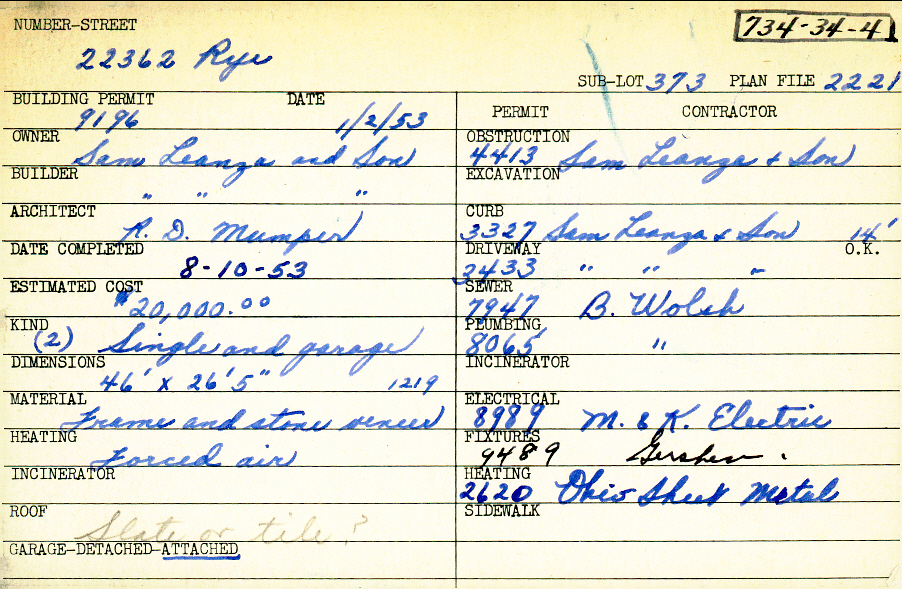 NUMBER-STREET
734-34-4
22362 Rye
SUB-LOT 373 PLAN FILE 2221
BUILDING PERMIT DATE
9196 1/2/53
OWNER
Sam Leanza and Son
BUILDER
" " "
ARCHITECT
R. D. Mumper
DATE COMPLETED
8-10-53
ESTIMATED COST
$20,000.00
KIND
(2) Single and garage
DIMENSIONS
46' x 26'5" 1219
MATERIAL
Frame and stone veneer
HEATING
Forced air
INCINERATOR
ROOF
Slate or tile?
GARAGE-DETACHED-ATTACHED
PERMIT CONTRACTOR
OBSTRUCTION
4413 Sam Leanza & Son
EXCAVATION
CURB
3327 Sam Leanza & Son 14'
DRIVEWAY O.K.
3433 " " "
SEWER
7947 B. Wolsh
PLUMBING
8065 "
INCINERATOR
ELECTRICAL
8989 M. & K. Electric
FIXTURES
9489 Gershen.
HEATING
2620 Ohio Sheet Metal
SIDEWALK